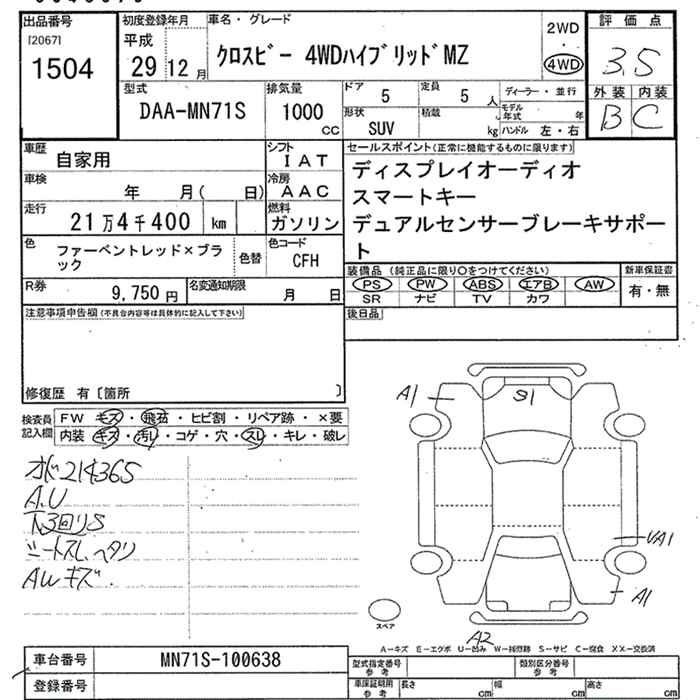 出品番号
[2067]
1504
初度登録年月
平成
29 12 月
車名・グレード
クロスビー 4WDハイブリッドMZ
2WD
・
4WD
評価点
3.5
外装 内装
B C
型式
DAA-MN71S
排気量
1000
cc
ドア
5
定員
5 人
形状
SUV
積載
kg
ディーラー・並行
モデル年式 年
ハンドル 左・右
車歴
自家用
シフト
IAT
車検
年 月( 日)
冷房
AAC
走行
21万4千400 km
燃料
ガソリン
色
ファーベントレッド×ブラ
ック
色替
色コード
CFH
R券
9,750 円
名変通知期限
月 日
セールスポイント(正常に機能するものに限ります)
ディスプレイオーディオ
スマートキー
デュアルセンサーブレーキサポー
ト
装備品(純正品に限り○をつけてください)
新車保証書
PS PW ABS エアB AW
SR ナビ TV カワ
有・無
後日品
注意事項申告欄(不具合内容等は具体的に記入して下さい)
修復歴 有〔箇所 〕
検査員
記入欄
FW キズ・飛石・ヒビ割・リペア跡・×要
内装 キズ・汚れ・コゲ・穴・スレ・キレ・破レ
214365
A.U
シートスレ ヘタリ
AWキズ.
A1
S1
A1
A2
スペア
A−キズ E−エクボ U−凹み W−補修跡 S−サビ C−腐食 XX−交換済
車台番号
MN71S-100638
登録番号
型式指定番号
参考
類別区分番号
参考
車庫証明用
参考
長さ cm
幅 cm
高さ cm